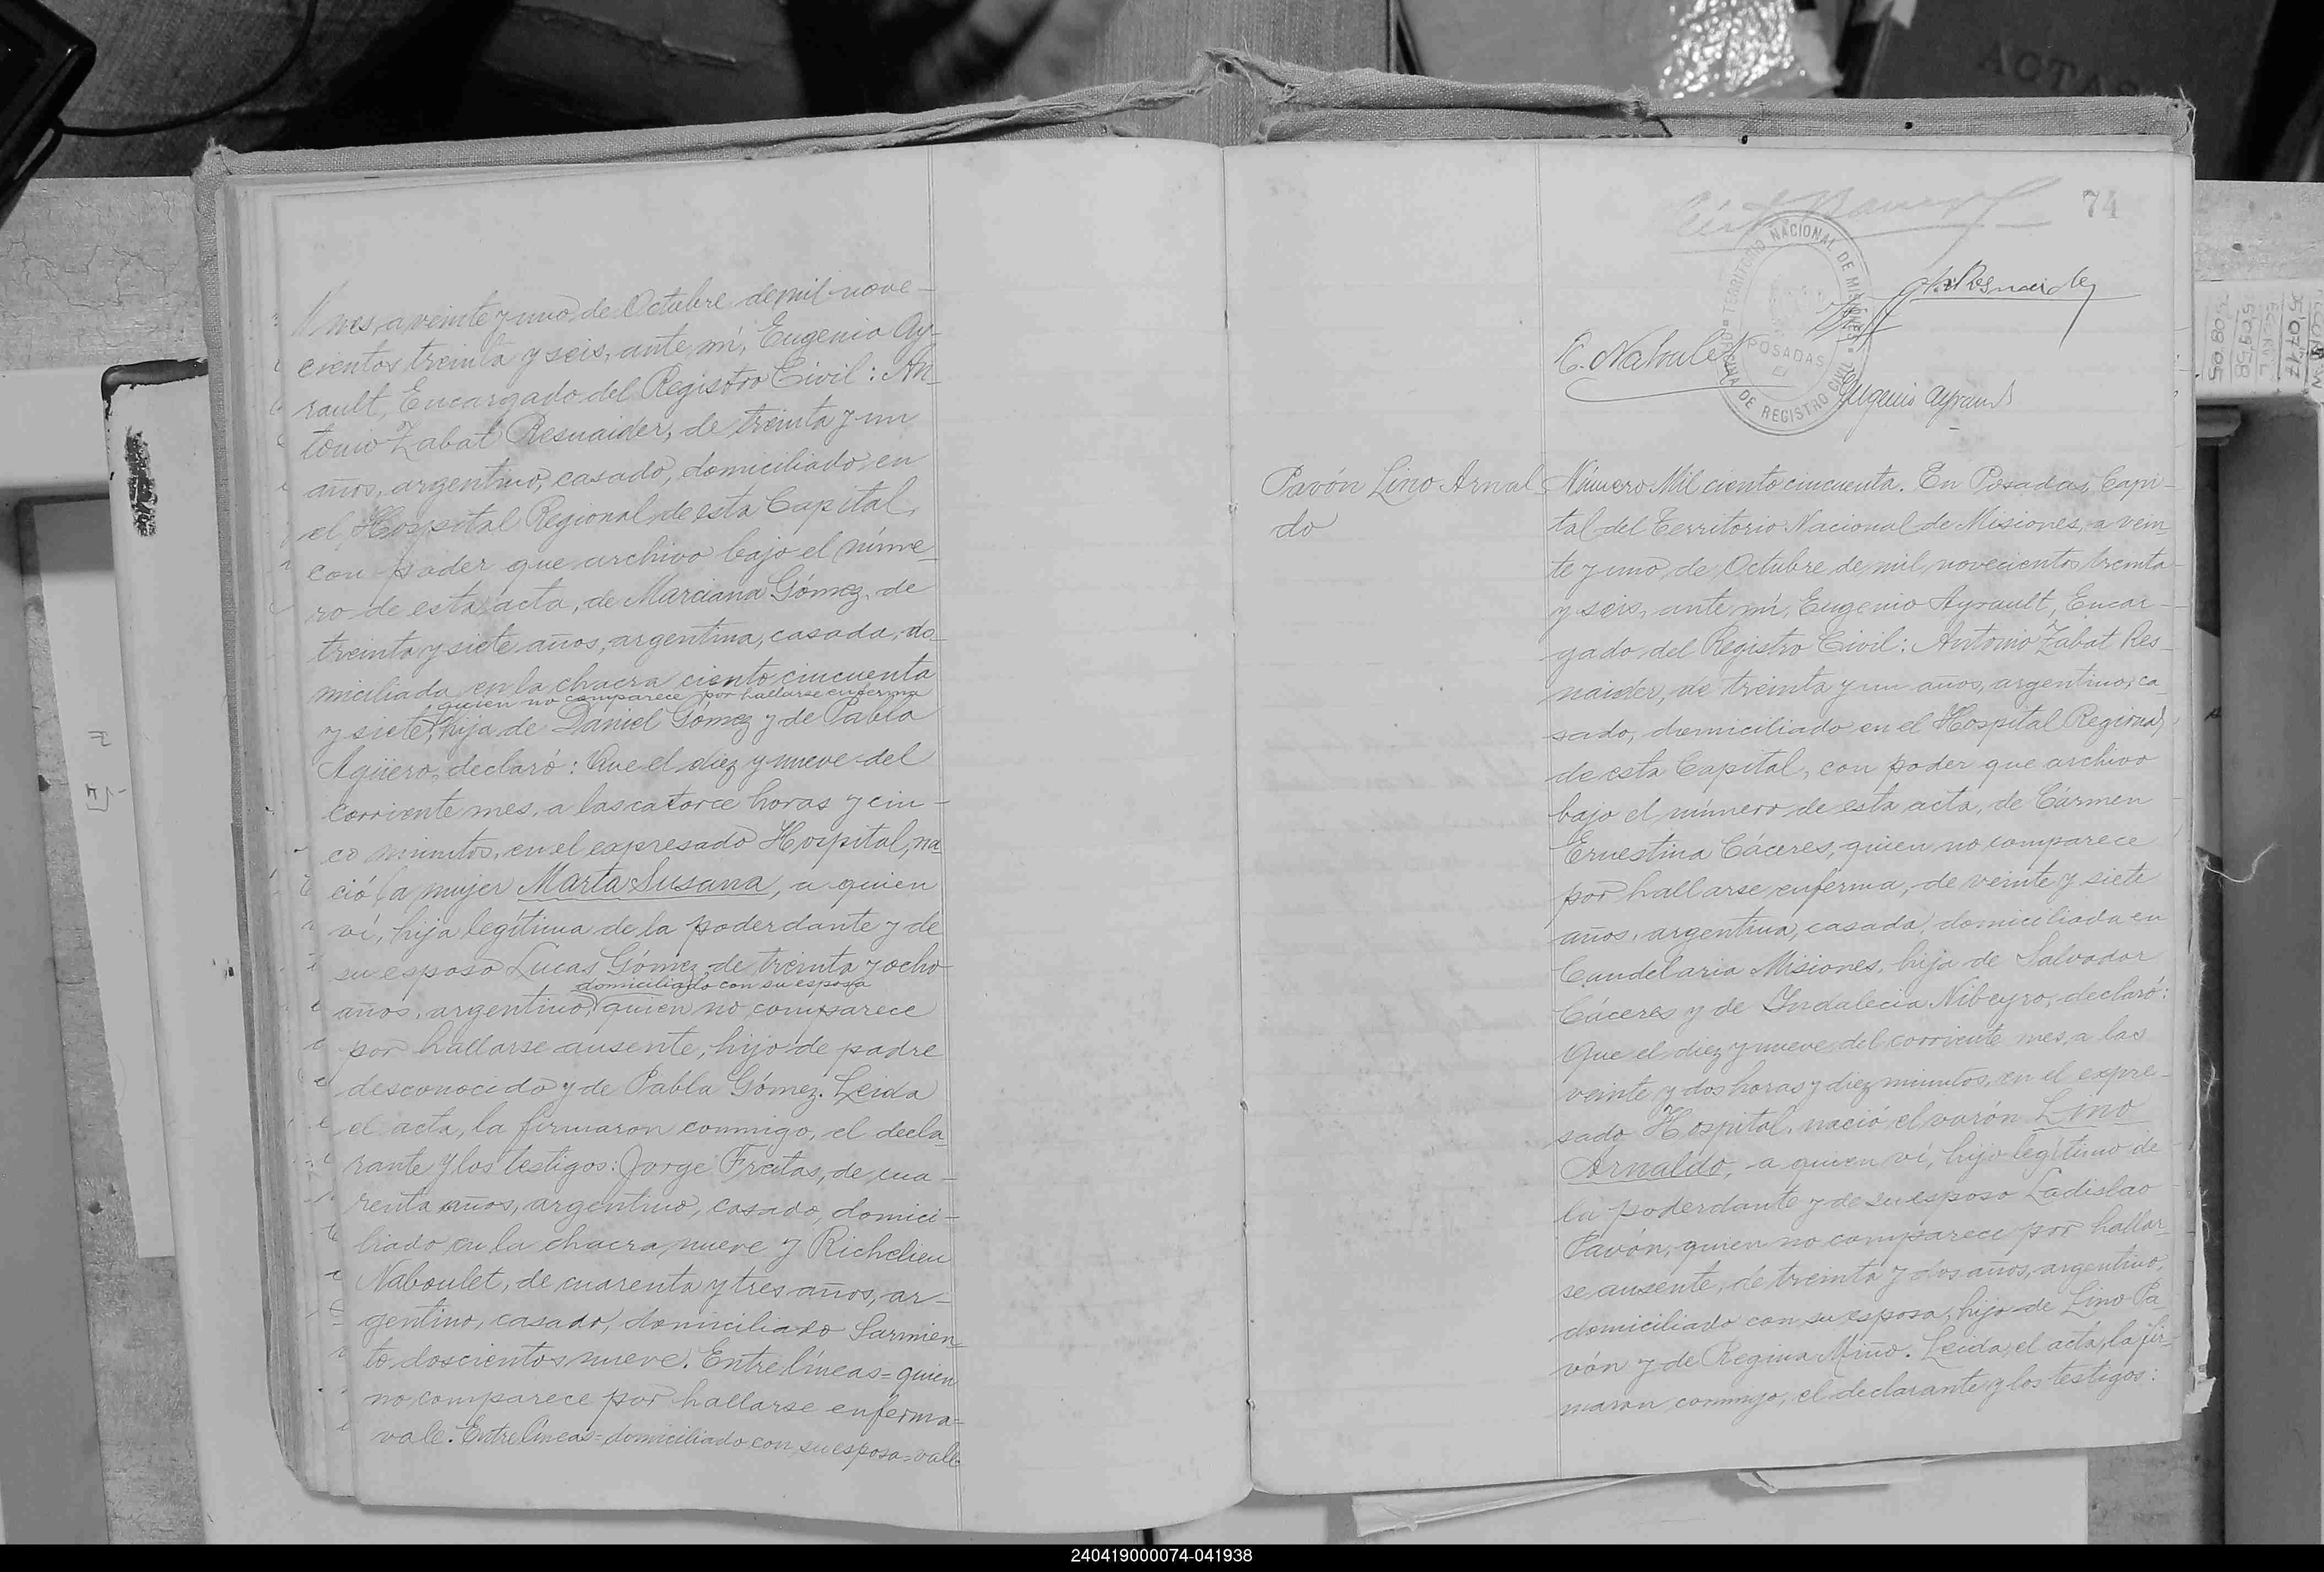 nes, a veinte y uno de Octubre de mil nove-
cientos treinta y seis, ante mí, Eugenio Ay-
rault, Encargado del Registro Civil: An-
tonio Zabat Resnaider, de treinta y un
años, argentino, casado, domiciliado en
el Hospital Regional de esta Capital,
con poder que archivo bajo el núme-
ro de esta acta, de Marciana Gómez, de
treinta y siete años, argentina, casada, do-
miciliada en la chacra ciento cincuenta
quien no comparece por hallarse enferma
y siete, hija de Daniel Gómez y de Pabla
Agüero, declaró: Que el diez y nueve del
corriente mes, a las catorce horas y cin-
co minutos, en el expresado Hospital, na-
ció la mujer Marta Susana, a quien
ví, hija legítima de la poderdante y de
su esposo Lucas Gómez, de treinta y ocho
domiciliado con su esposa
años, argentino, quien no comparece
por hallarse ausente, hijo de padre
desconocido y de Pabla Gómez. Leida
el acta, la firmaron conmigo, el decla-
rante y los testigos: Jorge Freitas, de cua-
renta años, argentino, casado, domici-
liado en la chacra nueve y Richelieu
Naboulet, de cuarenta y tres años, ar-
gentino, casado, domiciliado Sarmien-
to doscientos nueve. Entre líneas = quien
no comparece por hallarse enferma =
vale. Entre líneas = domiciliado con su esposa = vale
74
TERRITORIO NACIONAL DE MISIONES
OFICINA DE REGISTRO CIVIL
POSADAS
R. Naboulet
Eugenio Ayrault
Pavón Lino Arnal-
do
Número Mil ciento cincuenta. En Posadas, Capi-
tal del Territorio Nacional de Misiones, a vein-
te y uno de Octubre de mil novecientos treinta
y seis, ante mí, Eugenio Ayrault, Encar-
gado del Registro Civil: Antonio Zabat Res-
naider, de treinta y un años, argentino, ca-
sado, domiciliado en el Hospital Regional
de esta Capital, con poder que archivo
bajo el número de esta acta, de Cármen
Ernestina Cáceres, quien no comparece
por hallarse enferma, de veinte y siete
años, argentina, casada, domiciliada en
Candelaria Misiones, hija de Salvador
Cáceres y de Indalecia Nibeyro, declaró:
Que el diez y nueve del corriente mes, a las
veinte y dos horas y diez minutos, en el expre-
sado Hospital, nació el varón Lino
Arnaldo, a quien ví, hijo legítimo de
la poderdante y de su esposo Ladislao
Pavón, quien no comparece por hallar-
se ausente, de treinta y dos años, argentino,
domiciliado con su esposa, hijo de Lino Pa-
vón y de Regina Miño. Leida el acta, la fir-
maron conmigo, el declarante y los testigos:
240419000074-041938